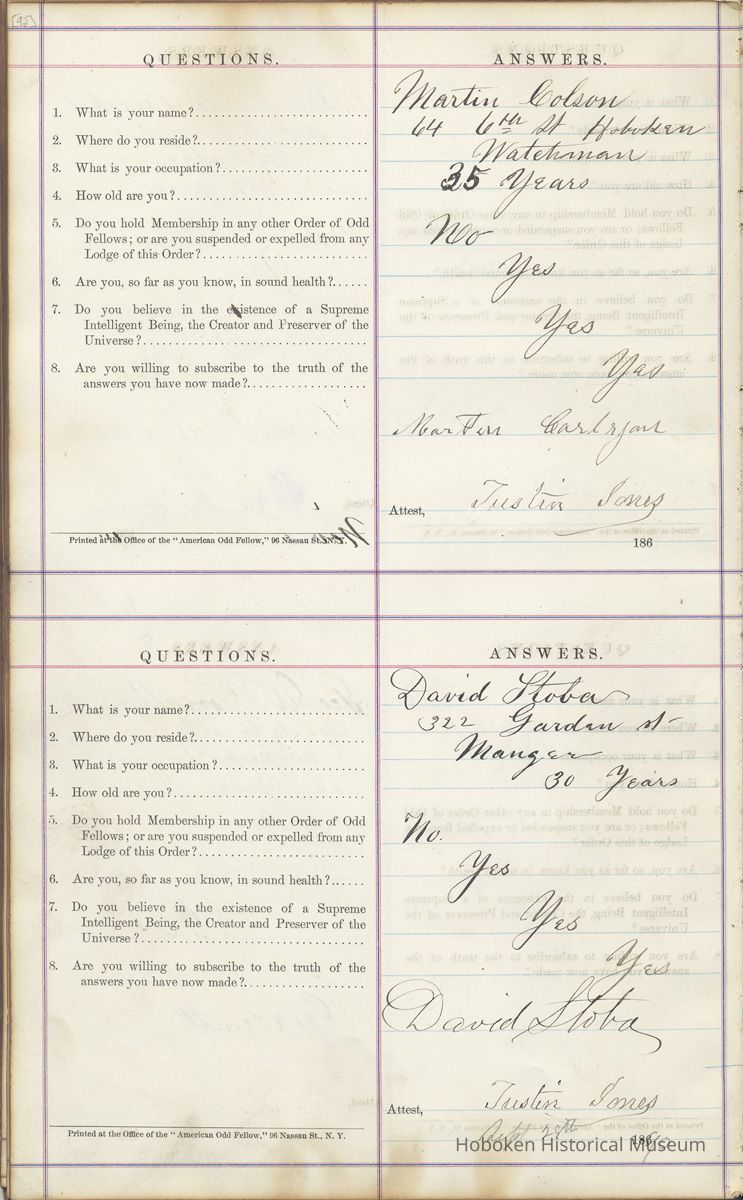 [92]
QUESTIONS.
1. What is your name?
2. Where do you reside?
3. What is your occupation?
4. How old are you?
5. Do you hold Membership in any other Order of Odd
Fellows; or are you suspended or expelled from any
Lodge of this Order?
6. Are you, so far as you know, in sound health?
7. Do you believe in the existence of a Supreme
Intelligent Being, the Creator and Preserver of the
Universe?
8. Are you willing to subscribe to the truth of the
answers you have now made?
Printed at the Office of the "American Odd Fellow," 96 Nassau St., N. Y.
ANSWERS.
Martin Colson
64 6th St Hoboken
Watchman
35 Years
No
Yes
Yes
Yes
Marten Carlson
Attest, Justin Jones
186
QUESTIONS.
1. What is your name?
2. Where do you reside?
3. What is your occupation?
4. How old are you?
5. Do you hold Membership in any other Order of Odd
Fellows; or are you suspended or expelled from any
Lodge of this Order?
6. Are you, so far as you know, in sound health?
7. Do you believe in the existence of a Supreme
Intelligent Being, the Creator and Preserver of the
Universe?
8. Are you willing to subscribe to the truth of the
answers you have now made?
Printed at the Office of the "American Odd Fellow," 96 Nassau St., N. Y.
ANSWERS.
David Stoba
322 Garden st
Manger
30 Years
No.
Yes
Yes
Yes
David Stoba
Attest, Justin Jones
Sept 28th 186
Hoboken Historical Museum